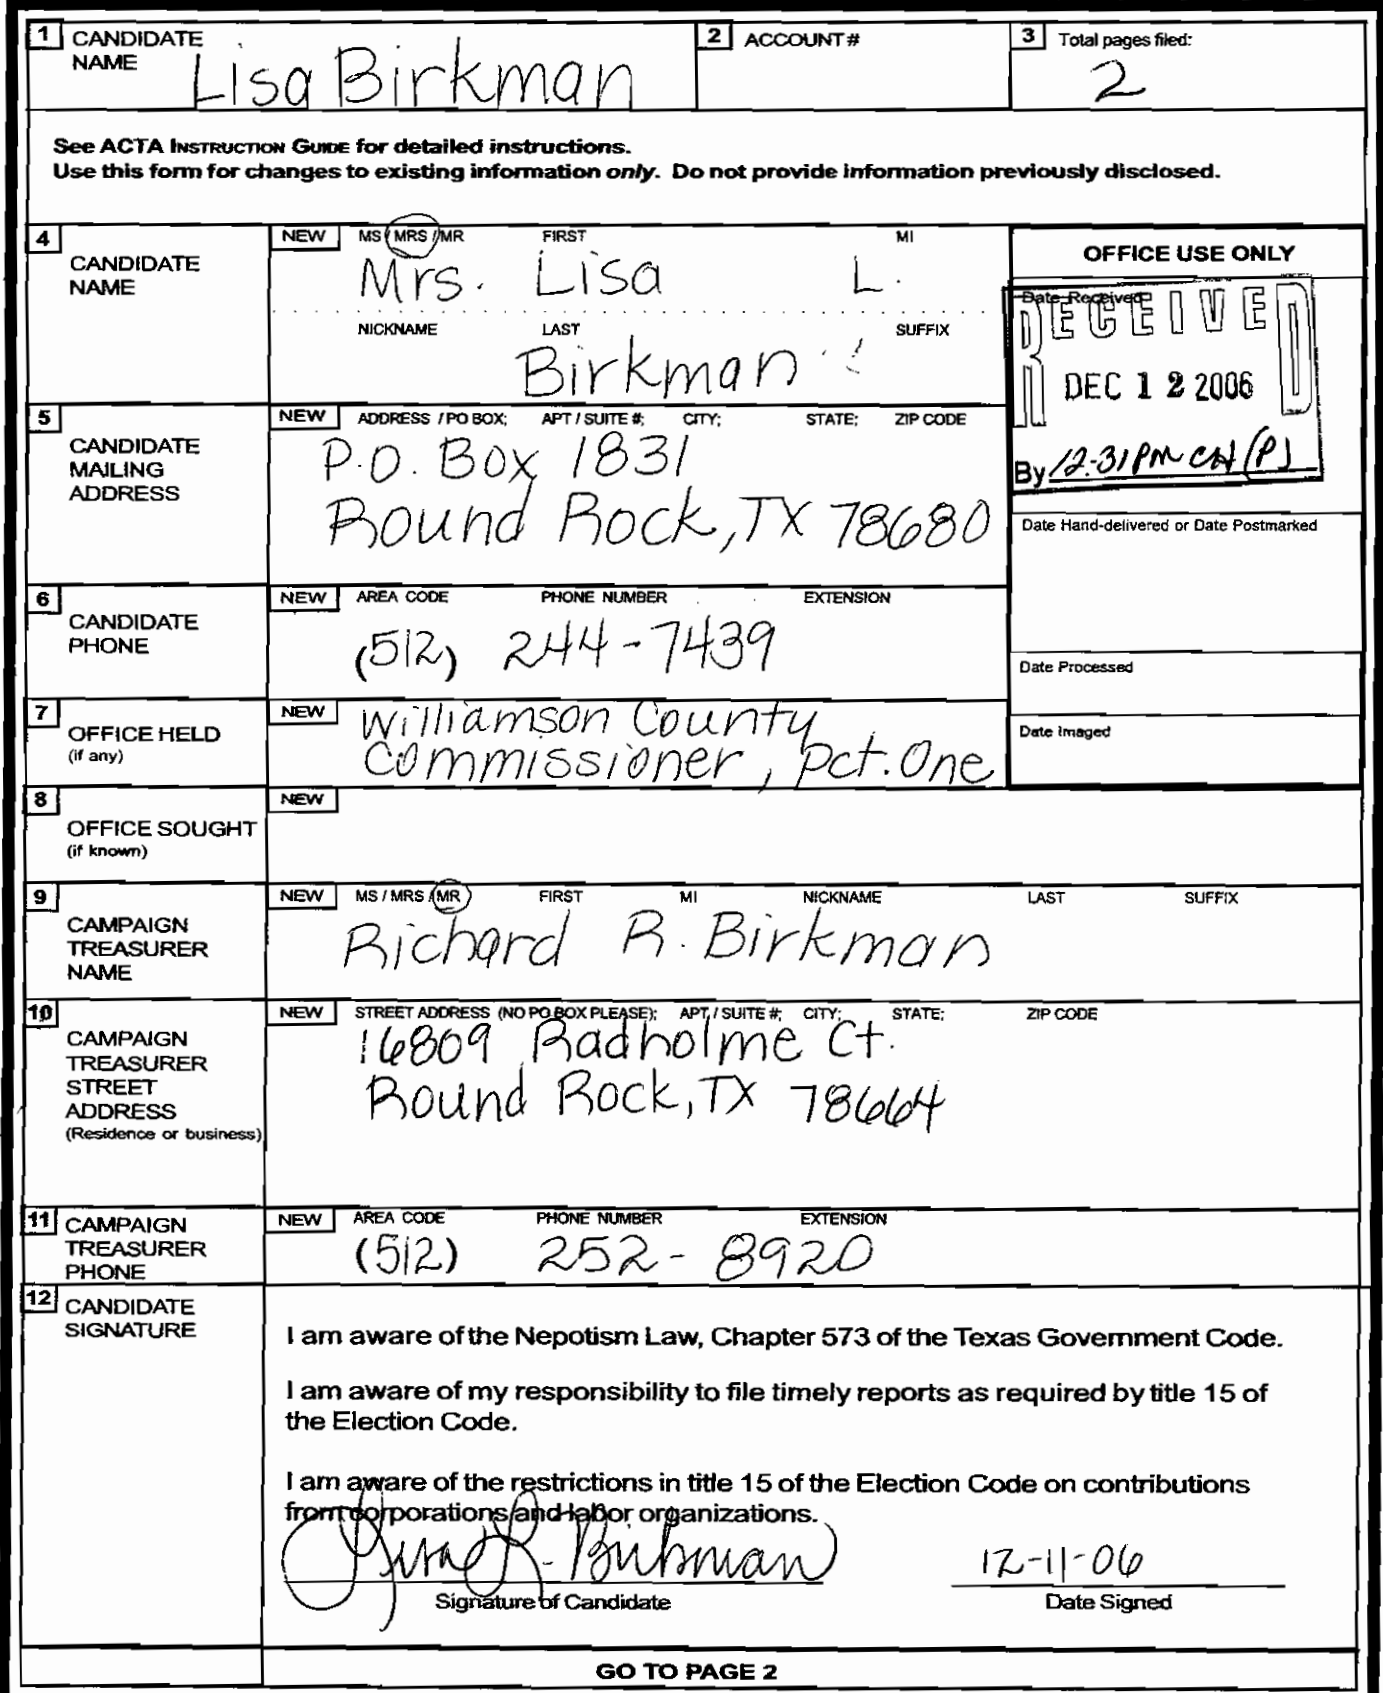 1 CANDIDATE NAME Lisa Birkman
2 ACCOUNT #
3 Total pages filed: 2
See ACTA INSTRUCTION GUIDE for detailed instructions.
Use this form for changes to existing information only. Do not provide information previously disclosed.
4 CANDIDATE NAME
NEW MS / MRS / MR FIRST MI
Mrs. Lisa L.
NICKNAME LAST SUFFIX
Birkman
OFFICE USE ONLY
Date Received
RECEIVED
DEC 12 2006
By 12:31 PM
Date Hand-delivered or Date Postmarked
Date Processed
Date Imaged
5 CANDIDATE MAILING ADDRESS
NEW ADDRESS / PO BOX; APT / SUITE #; CITY; STATE; ZIP CODE
P.O. Box 1831
Round Rock, TX 78680
6 CANDIDATE PHONE
NEW AREA CODE PHONE NUMBER EXTENSION
(512) 244-7439
7 OFFICE HELD (if any)
NEW Williamson County
Commissioner, Pct. One
8 OFFICE SOUGHT (if known)
NEW
9 CAMPAIGN TREASURER NAME
NEW MS / MRS / MR FIRST MI NICKNAME LAST SUFFIX
Richard R. Birkman
10 CAMPAIGN TREASURER STREET ADDRESS (Residence or business)
NEW STREET ADDRESS (NO PO BOX PLEASE); APT / SUITE #; CITY; STATE; ZIP CODE
16809 Radholme Ct.
Round Rock, TX 78664
11 CAMPAIGN TREASURER PHONE
NEW AREA CODE PHONE NUMBER EXTENSION
(512) 252-8920
12 CANDIDATE SIGNATURE
I am aware of the Nepotism Law, Chapter 573 of the Texas Government Code.
I am aware of my responsibility to file timely reports as required by title 15 of
the Election Code.
I am aware of the restrictions in title 15 of the Election Code on contributions
from corporations and labor organizations.
Lisa L. Birkman 12-11-06
Signature of Candidate Date Signed
GO TO PAGE 2